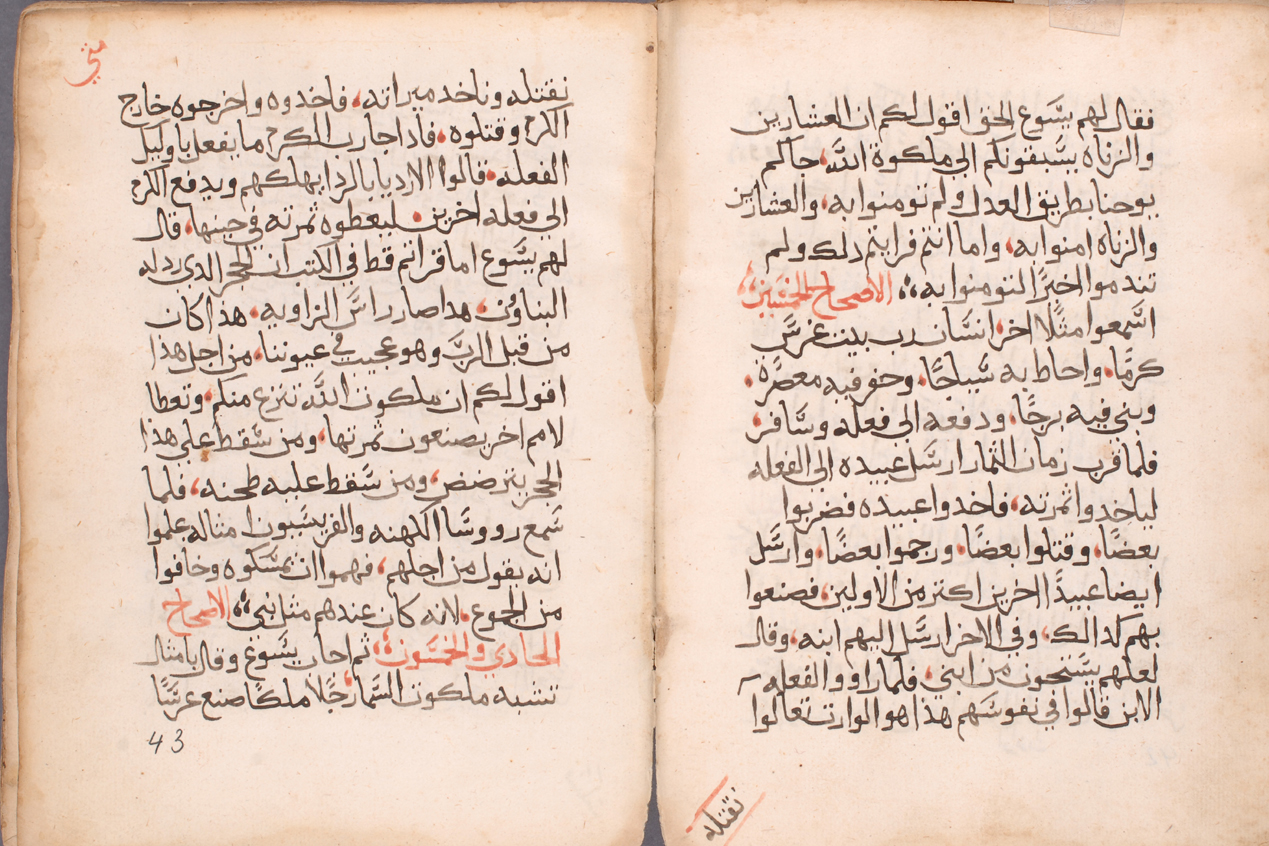 فقال لهم يسوع الحق اقول لكم ان العشارين
والزناه يسبقونكم الي ملكوة الله، جاكم
يوحنا بطريق العدل ولم تومنوا به، والعشارين
والزناه امنوا به، واما انتم فرايتم دلك ولم
تندموا اخيرًا لتومنوا به؞ الاصحاح الخمسين؞
اسمعوا مثلًا اخر، انسان رب بيت غرس
كرمًا، واحاط به سياجًا، وحفر فيه معصرة،
وبني فيه برجًا، ودفعه الي فعله وسافر،
فلما قرب زمان الثمار ارسل عبيده الي الفعله
لياخدوا ثمرته، فاخدوا عبيده فضربوا
بعضًا، وقتلوا بعضًا، ورجموا بعضًا، وارسل
ايضا عبيدًا اخرين اكتر من الاولين، فصنعوا
بهم كدالك، وفي الاخر ارسل اليهم ابنه، وقال
لعلهم يستحون من ابني، فلما راوو الفعله
الابن قالوا في نفوسهم هذا هو الوارت تعالوا
نقتله
متي
نقتله وناخد ميراته، فاخدوه واخرجوه خارج
الكرم وقتلوه، فادا جا رب الكرم ما يفعل باوليك
الفعله، قالوا الارديا بالردا يهلكهم ويدفع الكرم
الي فعله اخرين، ليعطوه ثمرته في حينها، قال
لهم يسوع اما قراتم قط في الكتب ان الحجر الدي ردله
البناوٌن، هدا صار راس الزاويه، هذا كان
من قبل الرب وهو عجيب في عيوننا، من اجل هذا
اقول لكم ان ملكوت الله تنزع منكم، وتعطا
لامم اخر يصنعون ثمرتها، ومن سقط علي هذا
الحجر يترضض، ومن سقط عليه طحنه، فلما
سمع رووسا الكهنه والفريسيون امثاله علموا
انه يقول من اجلهم، فهموا ان يمسكوه وخافوا
من الجموع، لانه كان عندهم مثل نبي؞ الاصحاح
الحادي والخمسون؞ ثم اجاب يسوع وقال بامثال
تشبه ملكوت السما، رجلًا ملكًا صنع عرسًا
43